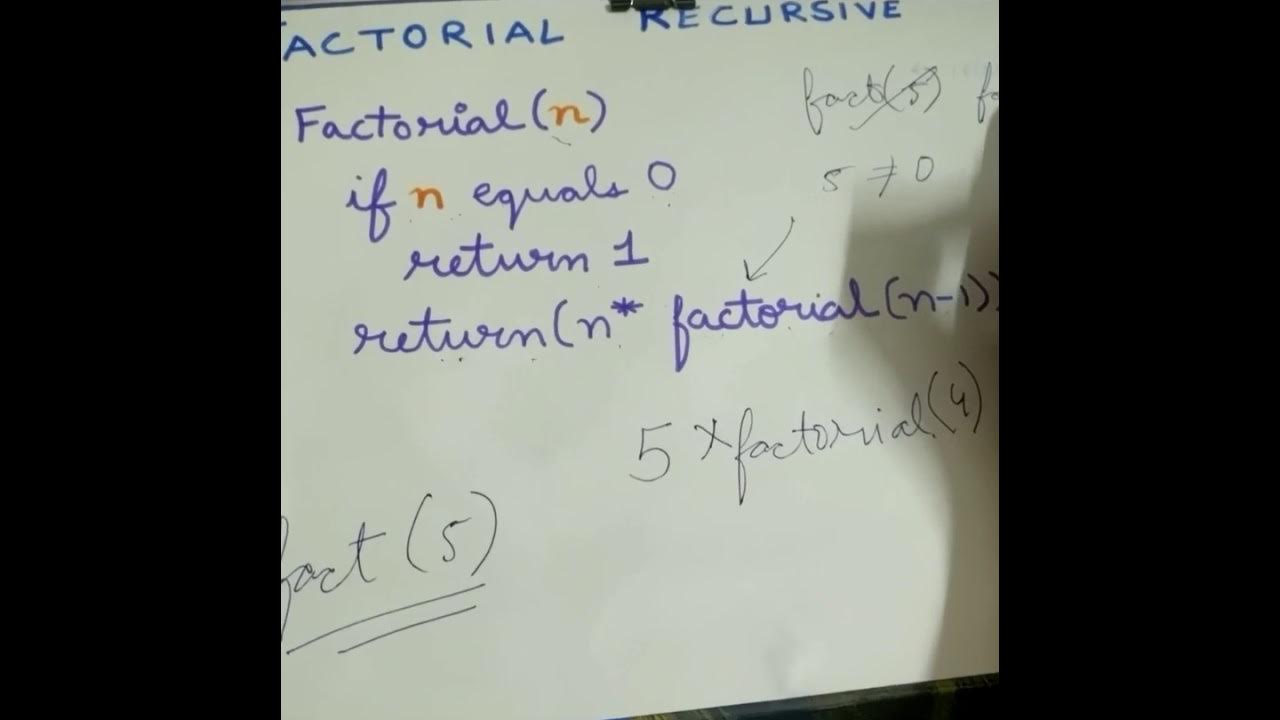 FACTORIAL RECURSIVE
Factorial(n)
if n equals 0
return 1
return(n* factorial(n-1))
fact(5)
5 ≠ 0
5 × factorial(4)
fact (5)